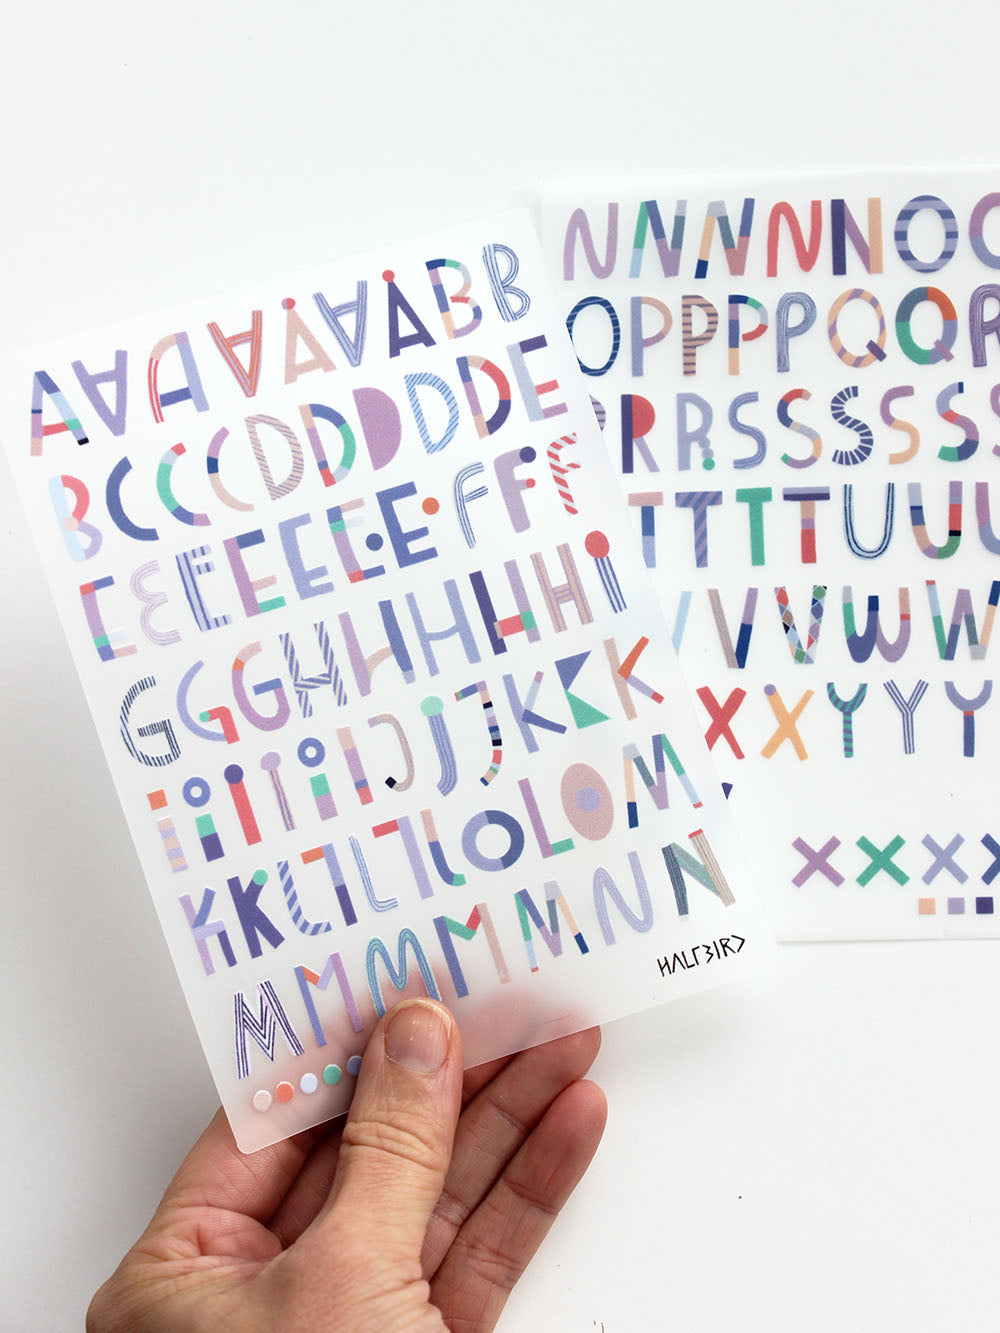 AAAAAAABB
BCCCDDDDDE
EEEEEEEFFF
GGGHHHHHI
iiiiiiJJJKKK
KKLLLLLOLOM
MMMMMNN
HALFBIRD
NNNNNO
OPPPPQQR
RRSSSSS
TTTTUUU
VVVWW
XXYYY
XXXX